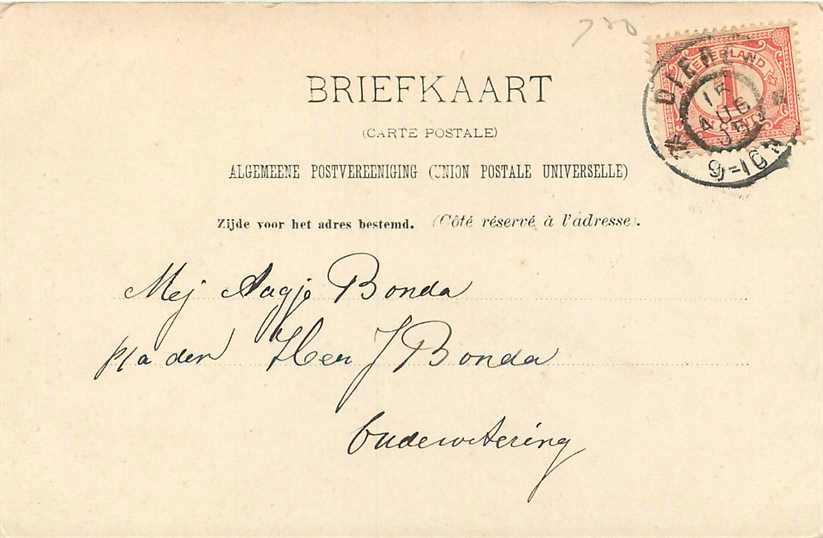 730
NEDERLAND
1
DIEREN
15 AUG
9-10 V
BRIEFKAART
(CARTE POSTALE)
ALGEMEENE POSTVEREENIGING (UNION POSTALE UNIVERSELLE)
Zijde voor het adres bestemd. (Côté réservé à l'adresse).
Mej Aagje Bonda
p/a den Heer J Bonda
Oudewetering